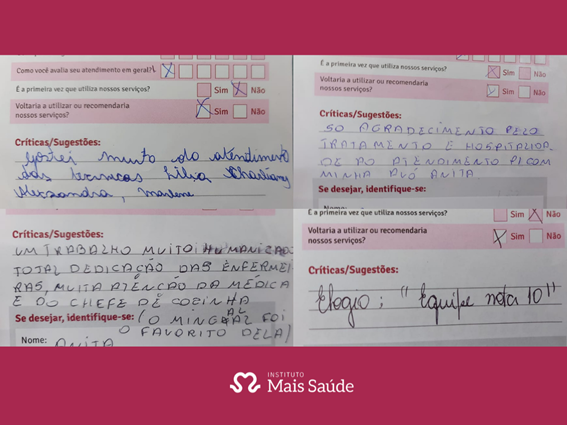 Como você avalia seu atendimento em geral?
É a primeira vez que utiliza nossos serviços?
Sim
Não
Voltaria a utilizar ou recomendaria
nossos serviços?
Sim
Não
Críticas/Sugestões:
Gostei muito do atendimento
das tecnicas Lilia
Alexsandra, Marlene
É a primeira vez que utiliza nossos serviços?
Sim
Não
Voltaria a utilizar ou recomendaria
nossos serviços?
Sim
Não
Críticas/Sugestões:
SO AGRADECIMENTO PELO
TRATAMENTO E HOSPITALIDA
DE AO ATENDIMENTO P/ COM
MINHA AVÓ ANITA
Se desejar, identifique-se:
Críticas/Sugestões:
UM TRABALHO MUITO HUMANIZADO
TOTAL DEDICAÇÃO DAS ENFERMEI
RAS, MUITA ATENÇÃO DA MÉDICA
E DO CHEFE DE COZINHA
Se desejar, identifique-se: (O MINGAL FOI
O FAVORITO DELA)
Nome: ANITA
É a primeira vez que utiliza nossos serviços?
Sim
Não
Voltaria a utilizar ou recomendaria
nossos serviços?
Sim
Não
Críticas/Sugestões:
Elogio: "Equipe nota 10"
INSTITUTO
Mais Saúde